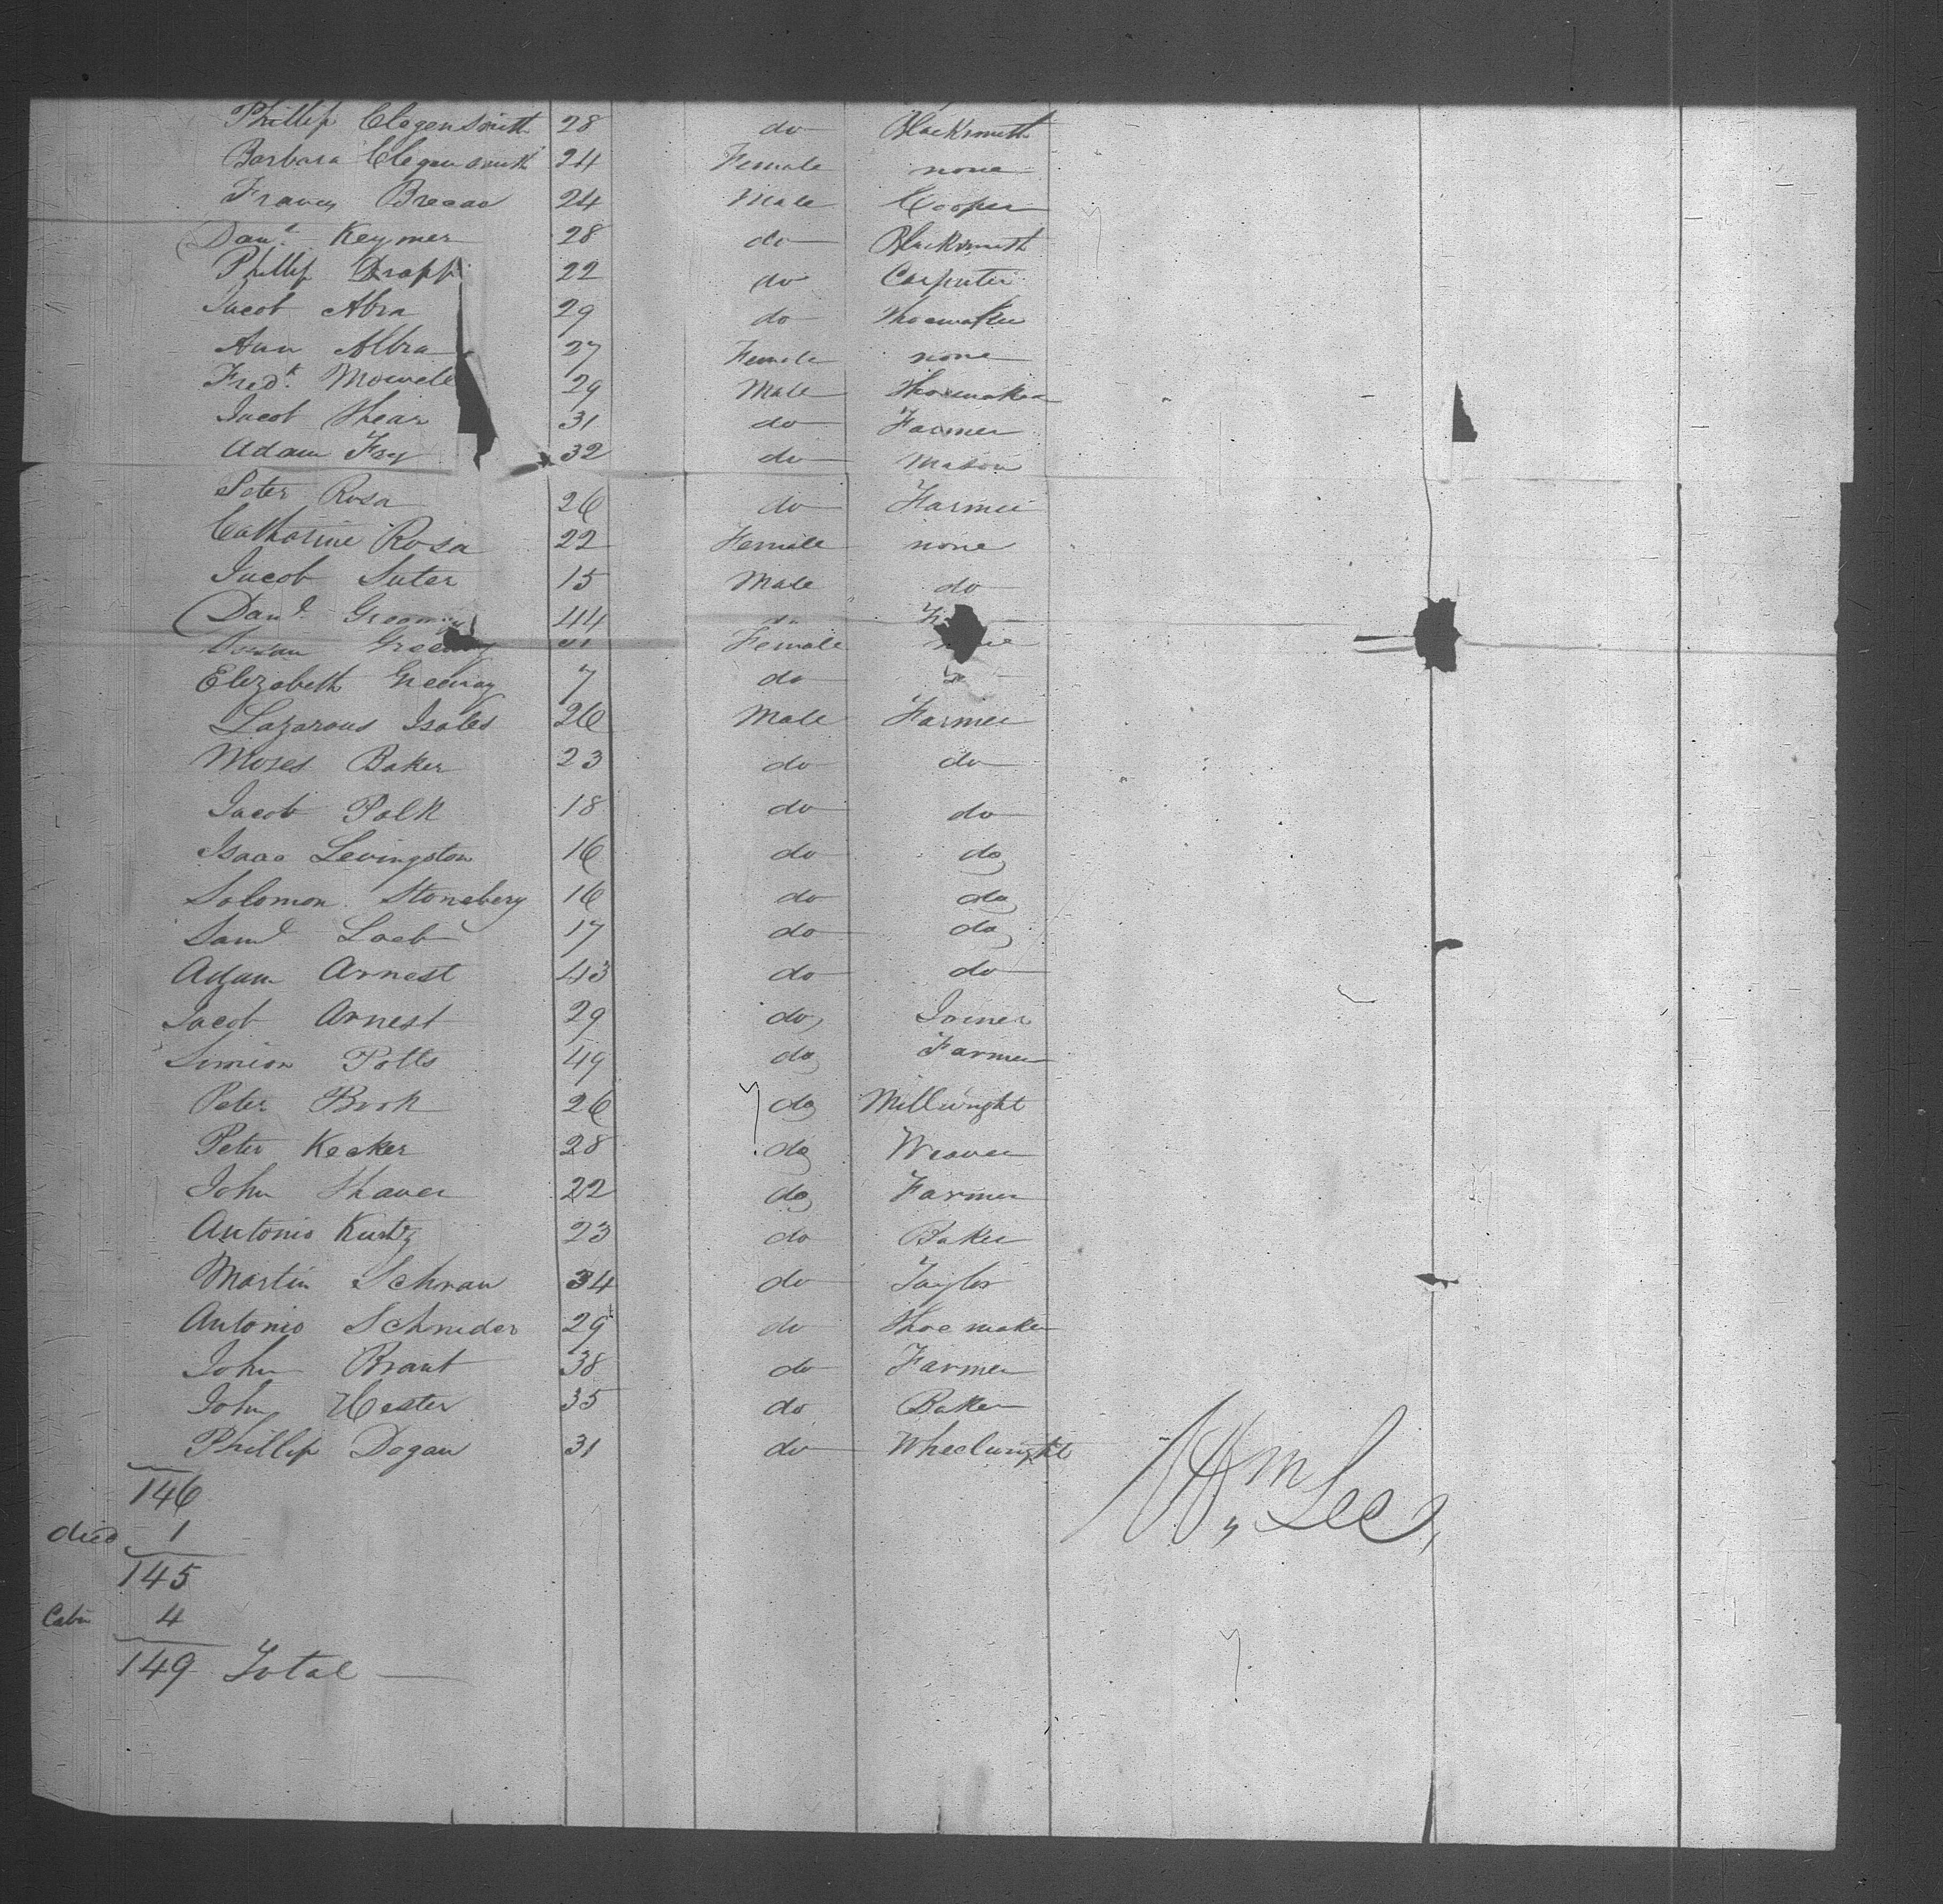 Phillip Clegensmith 28 do Blacksmith
Barbara Clegensmith 24 Female none
Francis 24 Male Cooper
Danl. Keymer 28 do Blacksmith
Phillip Drapp 22 do Carpenter
Jacob Abra 29 do Shoemaker
Ann Albra 27 Female none
Fredk. Mowell 29 Male Shoemaker
Jacob Shear 31 do Farmer
Adam Fey 32 do Mason
Peter Rosa 26 do Farmer
Catharine Rosa 22 Female none
Jacob Suter 15 Male do
Danl. 44 do
Female
Elizabeth Greeway 7 do
Lazarous Isales 26 Male Farmer
Moses Baker 23 do do
Jacob Polk 18 do do
Isaac Levingston 16 do do
Solomon Stoneberg 16 do do
Saml Loeb 17 do do
Adam Arnest 43 do do
Jacob Arnest 29 do Joiner
Simion Potts 49 do Farmer
Peter Brok 26 do Millwright
Peter Kecker 28 do Weaver
John Shaver 22 do Farmer
Antonio Kurtz 23 do Baker
Martin Schwan 34 do Taylor
Antonio Schnider 29 do Shoe maker
John Brant 38 do Farmer
John Hester 35 do Baker
Phillip Dogan 31 do Wheelwright
146
died 1
145
Cabin 4
149 Total
Wm Lee